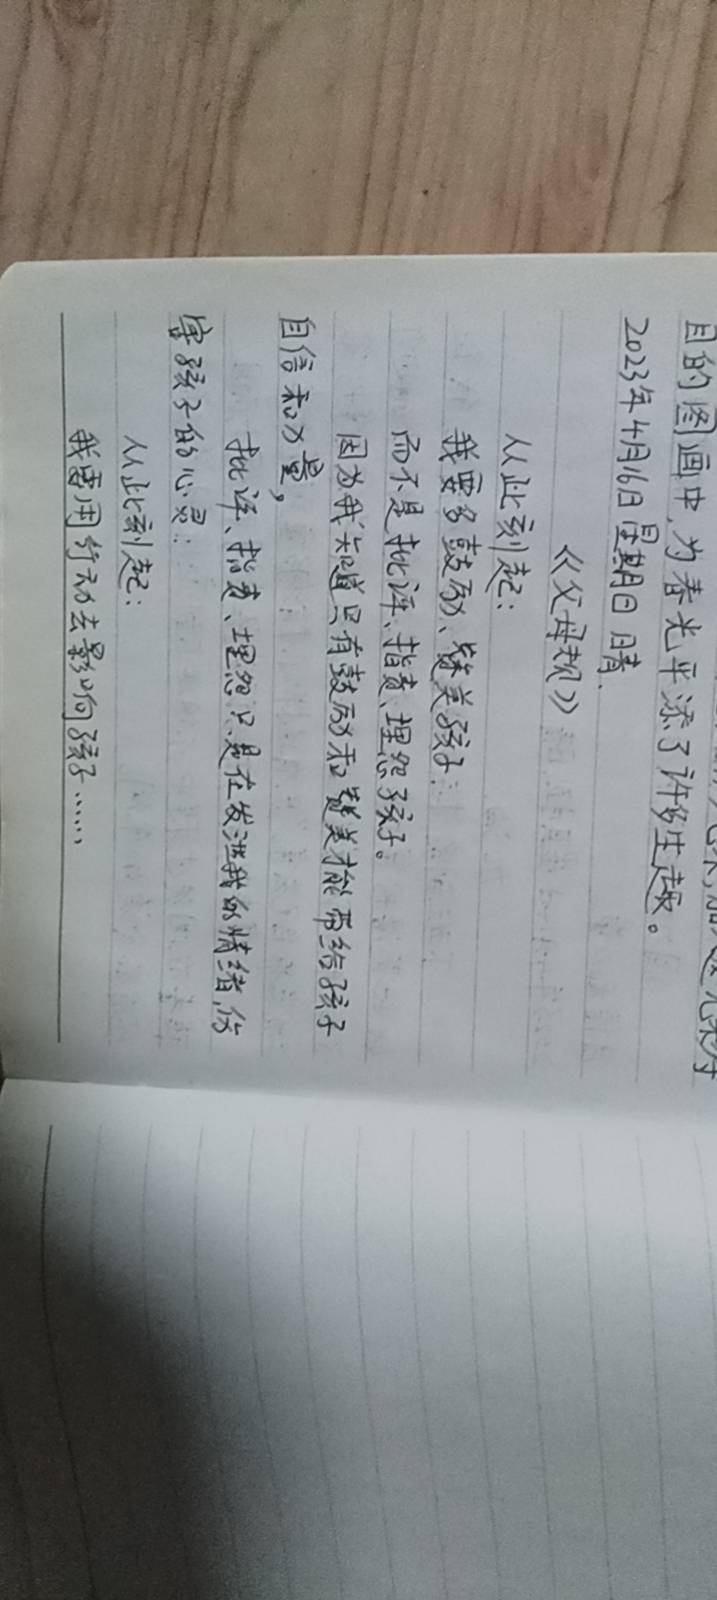 目的图画中,为春光平添了许多生趣。
2023年4月16日 星期日 晴.
《父母规》
从此刻起:
我要多鼓励、赞美孩子.
而不是批评、指责、埋怨孩子。
因为我知道只有鼓励和赞美才能带给孩子
自信和力量,
批评、指责、埋怨只是在发泄我的情绪,伤
害孩子的心灵.
从此刻起:
我要用行动去影响孩子……